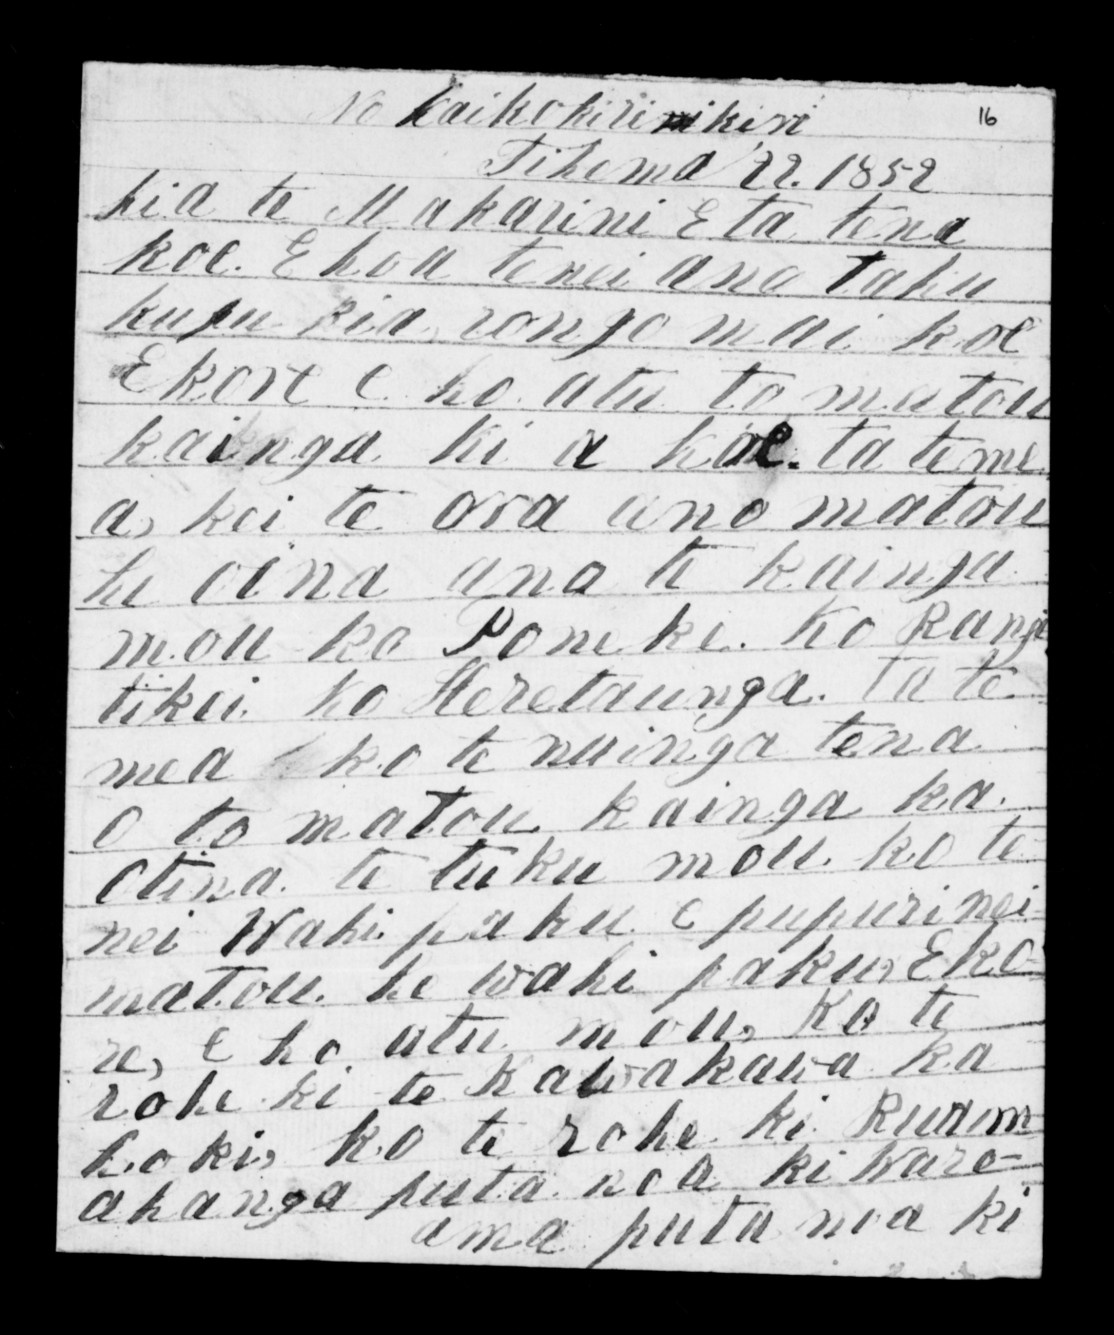 No Kaikokirikiri
16
Tihema 22. 1852
kia te Makarini E ta tena
koe. E hoa tenei ano taku
kupu kia rongo mai koe
Ekore e ho atu to matou
kainga ki a koe. ta teme
a, kei te ora ano matou
he oina ano te kainga
mou ko Poneke. Ko Rangi
tikei. ko Heretaunga. ta te
mea ko te nuinga tena
o to matou kainga ka.
otina te tuku mou. ko te
nei Wahi paku e pupuri nei
matou. he wahi paku, Eko
re, e ho atu mou, Ko te
rohe ki te Kawakawa ka
hoki, ko te rohe ki Ruam
ahanga puta noa ki Ware
ama puta noa ki